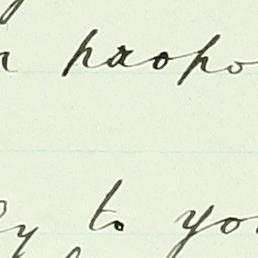 propo
y to yo